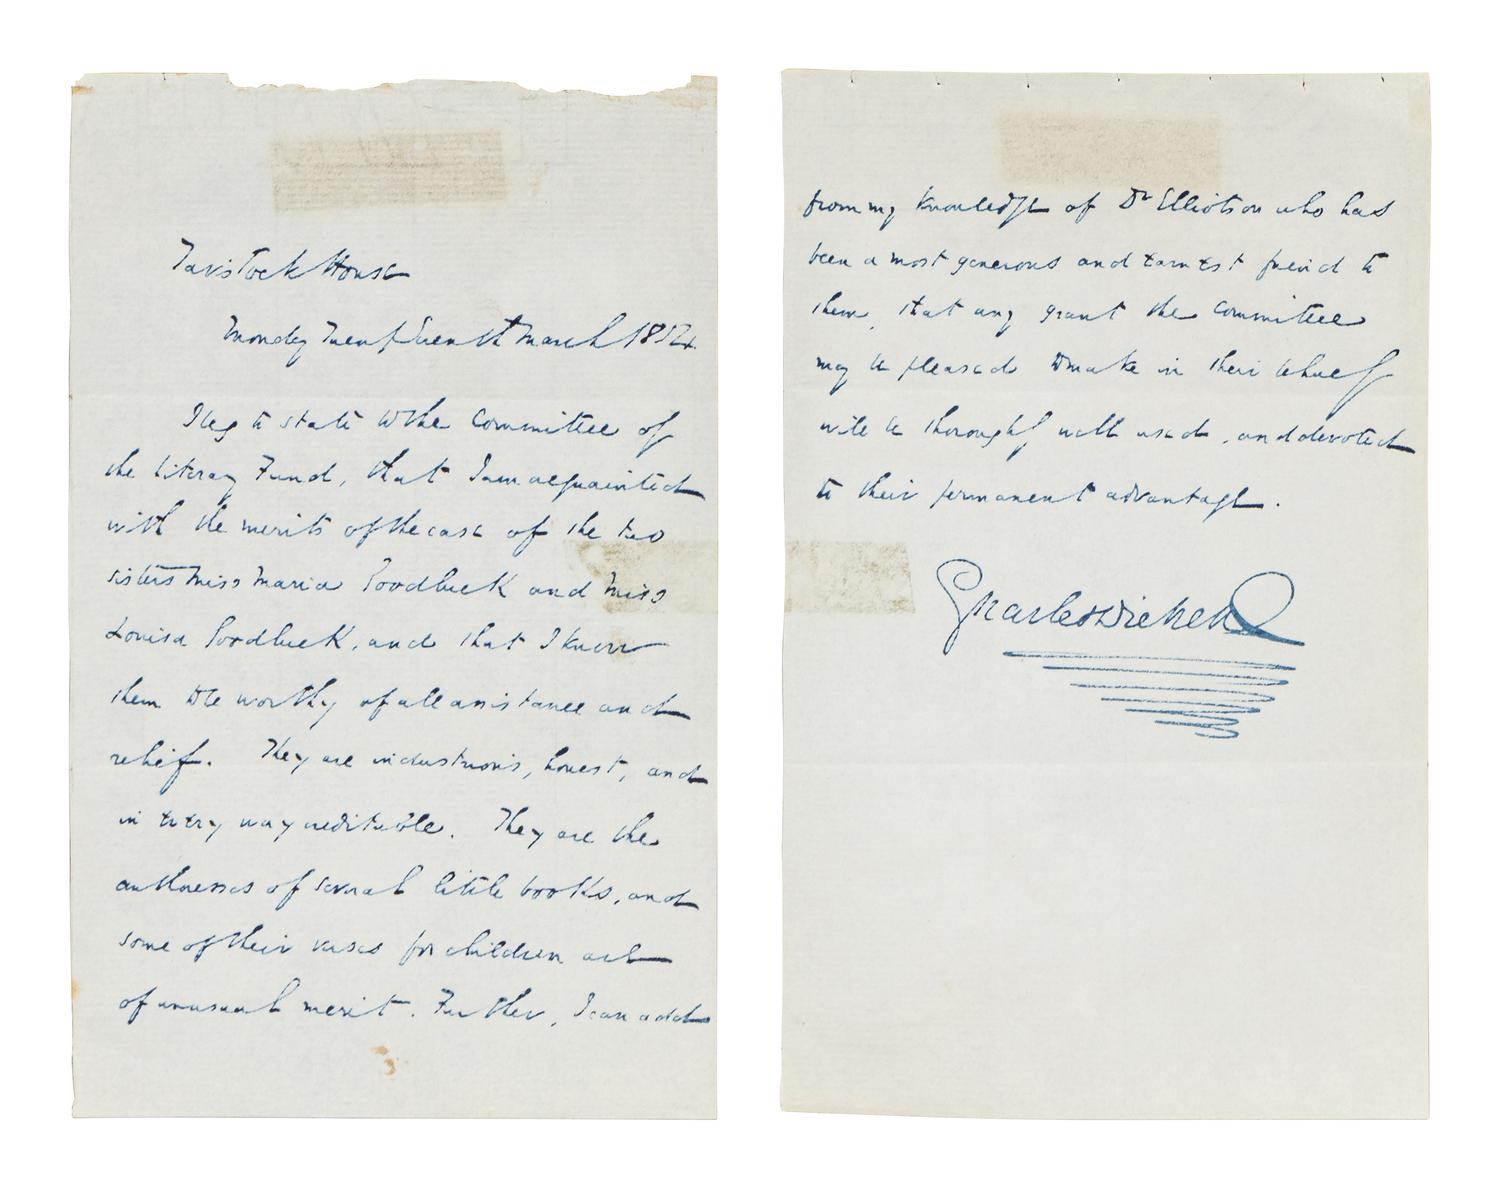 Tavistock House
Monday Twenty Seventh March 1854.
I beg to state to the Committee of
the Literary Fund, that I am acquainted
with the merits of the case of the two
sisters Miss Maria Goodluck and Miss
Louisa Goodluck, and that I know
them to be worthy of all assistance and
relief. They are industrious, honest, and
in every way creditable. They are the
authoresses of several little books, and
some of their verses for children are
of unusual merit. Further, I can add
from my knowledge of Dr Elliotson who has
been a most generous and earnest friend to
them, that any grant the Committee
may be pleased to make in their behalf
will be thoroughly well used, and devoted
to their permanent advantage.
Charles Dickens